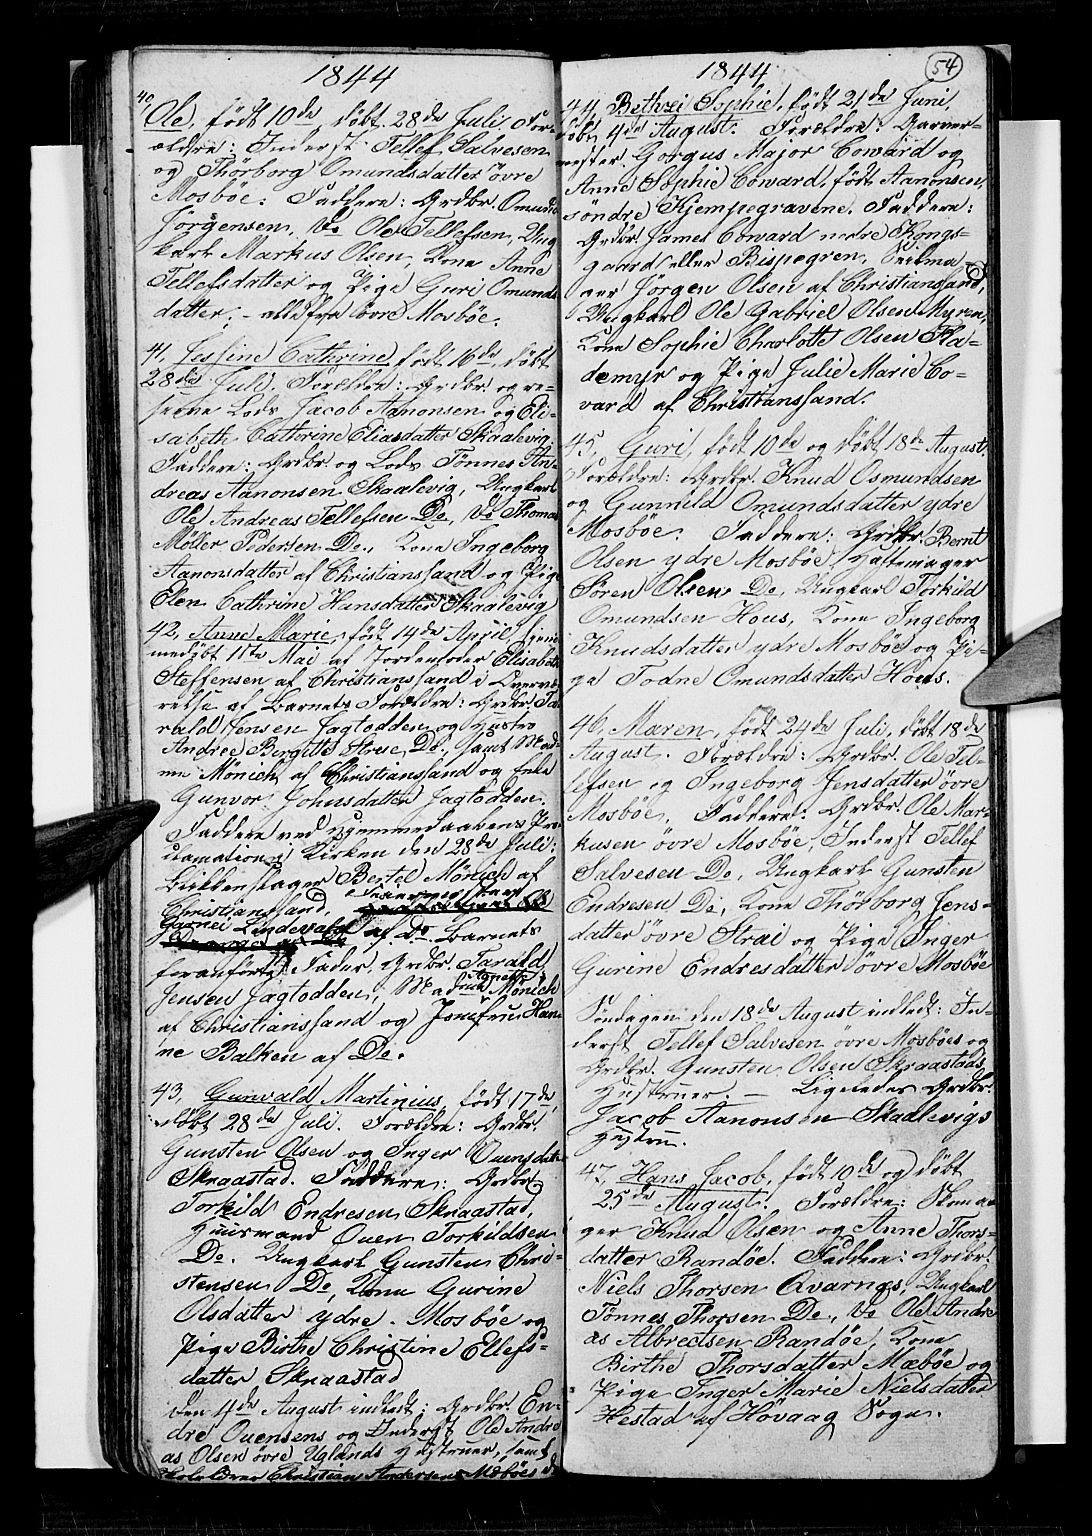 1844
40, Ole, født 10de, døbt 28de Juli. For-
ældre: Inderst Tellef Salvesen
og Thørborg Omundsdatter øvre
Mosbøe. Faddere: Grdbr. Omund
Jørgensen, Do Ole Tellefsen, Ung-
karl Markus Olsen, Kone Anne
Tellefsdatter og Pige Guri Omunds-
datter, – alle fra øvre Mosbøe.
41, Jessine Cathrine, født 16de, døbt
28de Juli. Forældre: Grdbr. og re-
Lods Jacob Aanonsen og Eli-
sabeth Cathrine Eliasdatter Skaalevig.
Faddere: Grdbr. og Lods Tønnes An-
dreas Aanonsen Skaalevig, Ungkarl
Ole Andreas Tellefsen Do., Do Thomas
Möller Pedersen Do., Kone Ingeborg
Aanonsdatter af Christianssand og Pige
Elen Cathrine Hansdatter Skaalevig
42, Anne Marie, født 14de April, hjem-
medøbt 11te Mai af Jordemoder Elisabeth
Steffensen af Christianssand i Overvæ-
relse af Barnets Forældre: Grdbr. Ta-
rald Jensen Jagtodden og Hustro
Andree Bergitte Strae Do., samt Mad-
me Mönich af Christianssand og Enke
Gunvor Johnsdatter Jagtodden.
Faddere ved Hjemmedaabens Pro-
clamation i Kirken den 28de Juli:
Blikkenslager Bertel Mönich af
Christianssand,
Lindevald af do Barnets
foranførte Fader, Grdbr. Tarald
Jensen Jagtodden, Mad Agnethe Mönich
af Christianssand og Jomfru Han-
ne Balken af Do.
43, Gunvald Martinius, født 17de,
døbt 28de Juli. Forældre: Grdbr.
Gunsten Olsen og Inger Ouensdatr.
Skraastad. Faddere: Grdbr.
Torkild Endresen Skraastad,
Huusmand Ouen Torkildsen
Do. Ungkarl Gunsten Chri-
stensen Do, Kone Gurine
Olsdatter ydre Mosbøe og
Pige Birthe Christine Ellefs-
datter Skraastad
Den 4de August indledt: Grdbr. En-
dre Ouensens og Inderst Ole Andre-
as Olsen øvre Uglands Hustruer, samt
Christian Andersens Mæbøes
1844
54
44, Bethzei Sophie, født 21de Juni,
døbt 4de August. Forældre: Garver-
mester Gorgus Major Coward og
Anne Sophie Coward, født Aanonsen,
søndre Kjempegravene. Faddere:
Grdbr. James Coward nedre Kongs-
gaard eller Bispegren,
Jørgen Olsen af Christianssand,
Ungkarl Ole Gabriel Olsen Myren,
Kone Sophie Charlotte Olsen Fla-
demyr og Pige Julie Marie Co-
vard af Christianssand.
45, Guri, født 10de og døbt 18de August,
Forældre: Grdbr. Knud Osmundsen
og Gunnild Omundsdatter ydre
Mosbøe. Faddere: Grdbr. Bernt
Olsen ydre Mosbøe, Hattemager
Søren Olsen Do, Ungkarl Torkild
Omundsen Hous, Kone Ingeborg
Knudsdatter ydre Mosbøe og Pi-
ge Todne Omundsdatter Hous.
46, Maren, født 24de Juli, døbt 18de
August. Forældre: Grdbr. Ole Tel-
lefsen og Ingeborg Jensdatter øvre
Mosbøe, Faddere: Grdbr. Ole Mar-
kusen øvre Mosbøe, Inderst Tellef
Salvesen Do, Ungkarl Gunsten
Endresen Do, Kone Thørborg Jens-
datter øvre Strai og Pige Inger
Gurine Endresdatter øvre Mosbøe
Søndagen den 18de August indledt: In-
derst Tellef Salvesen øvre Mosbøes og
Grdbr. Gunsten Olsen Skraastads
Hustruer. – Ligeledes Grdbr.
Jacob Aanonsen Skaalevigs
Hustru.
47, Hans Jacob, født 10de og døbt
25de August. Forældre: Skoma-
ger Knud Olsen og Anne Thors-
datter Randøe. Faddere: Grdbr.
Niels Thorsen Qvarnæs, Ungkarl
Tønnes Thorsen Do., Do Ole Andre-
as Albrectsen Randøe, Kone
Birthe Thorsdatter Mæbøe og
Pige Inger Marie Nielsdatter
Hestad af Høvaag Sogn.